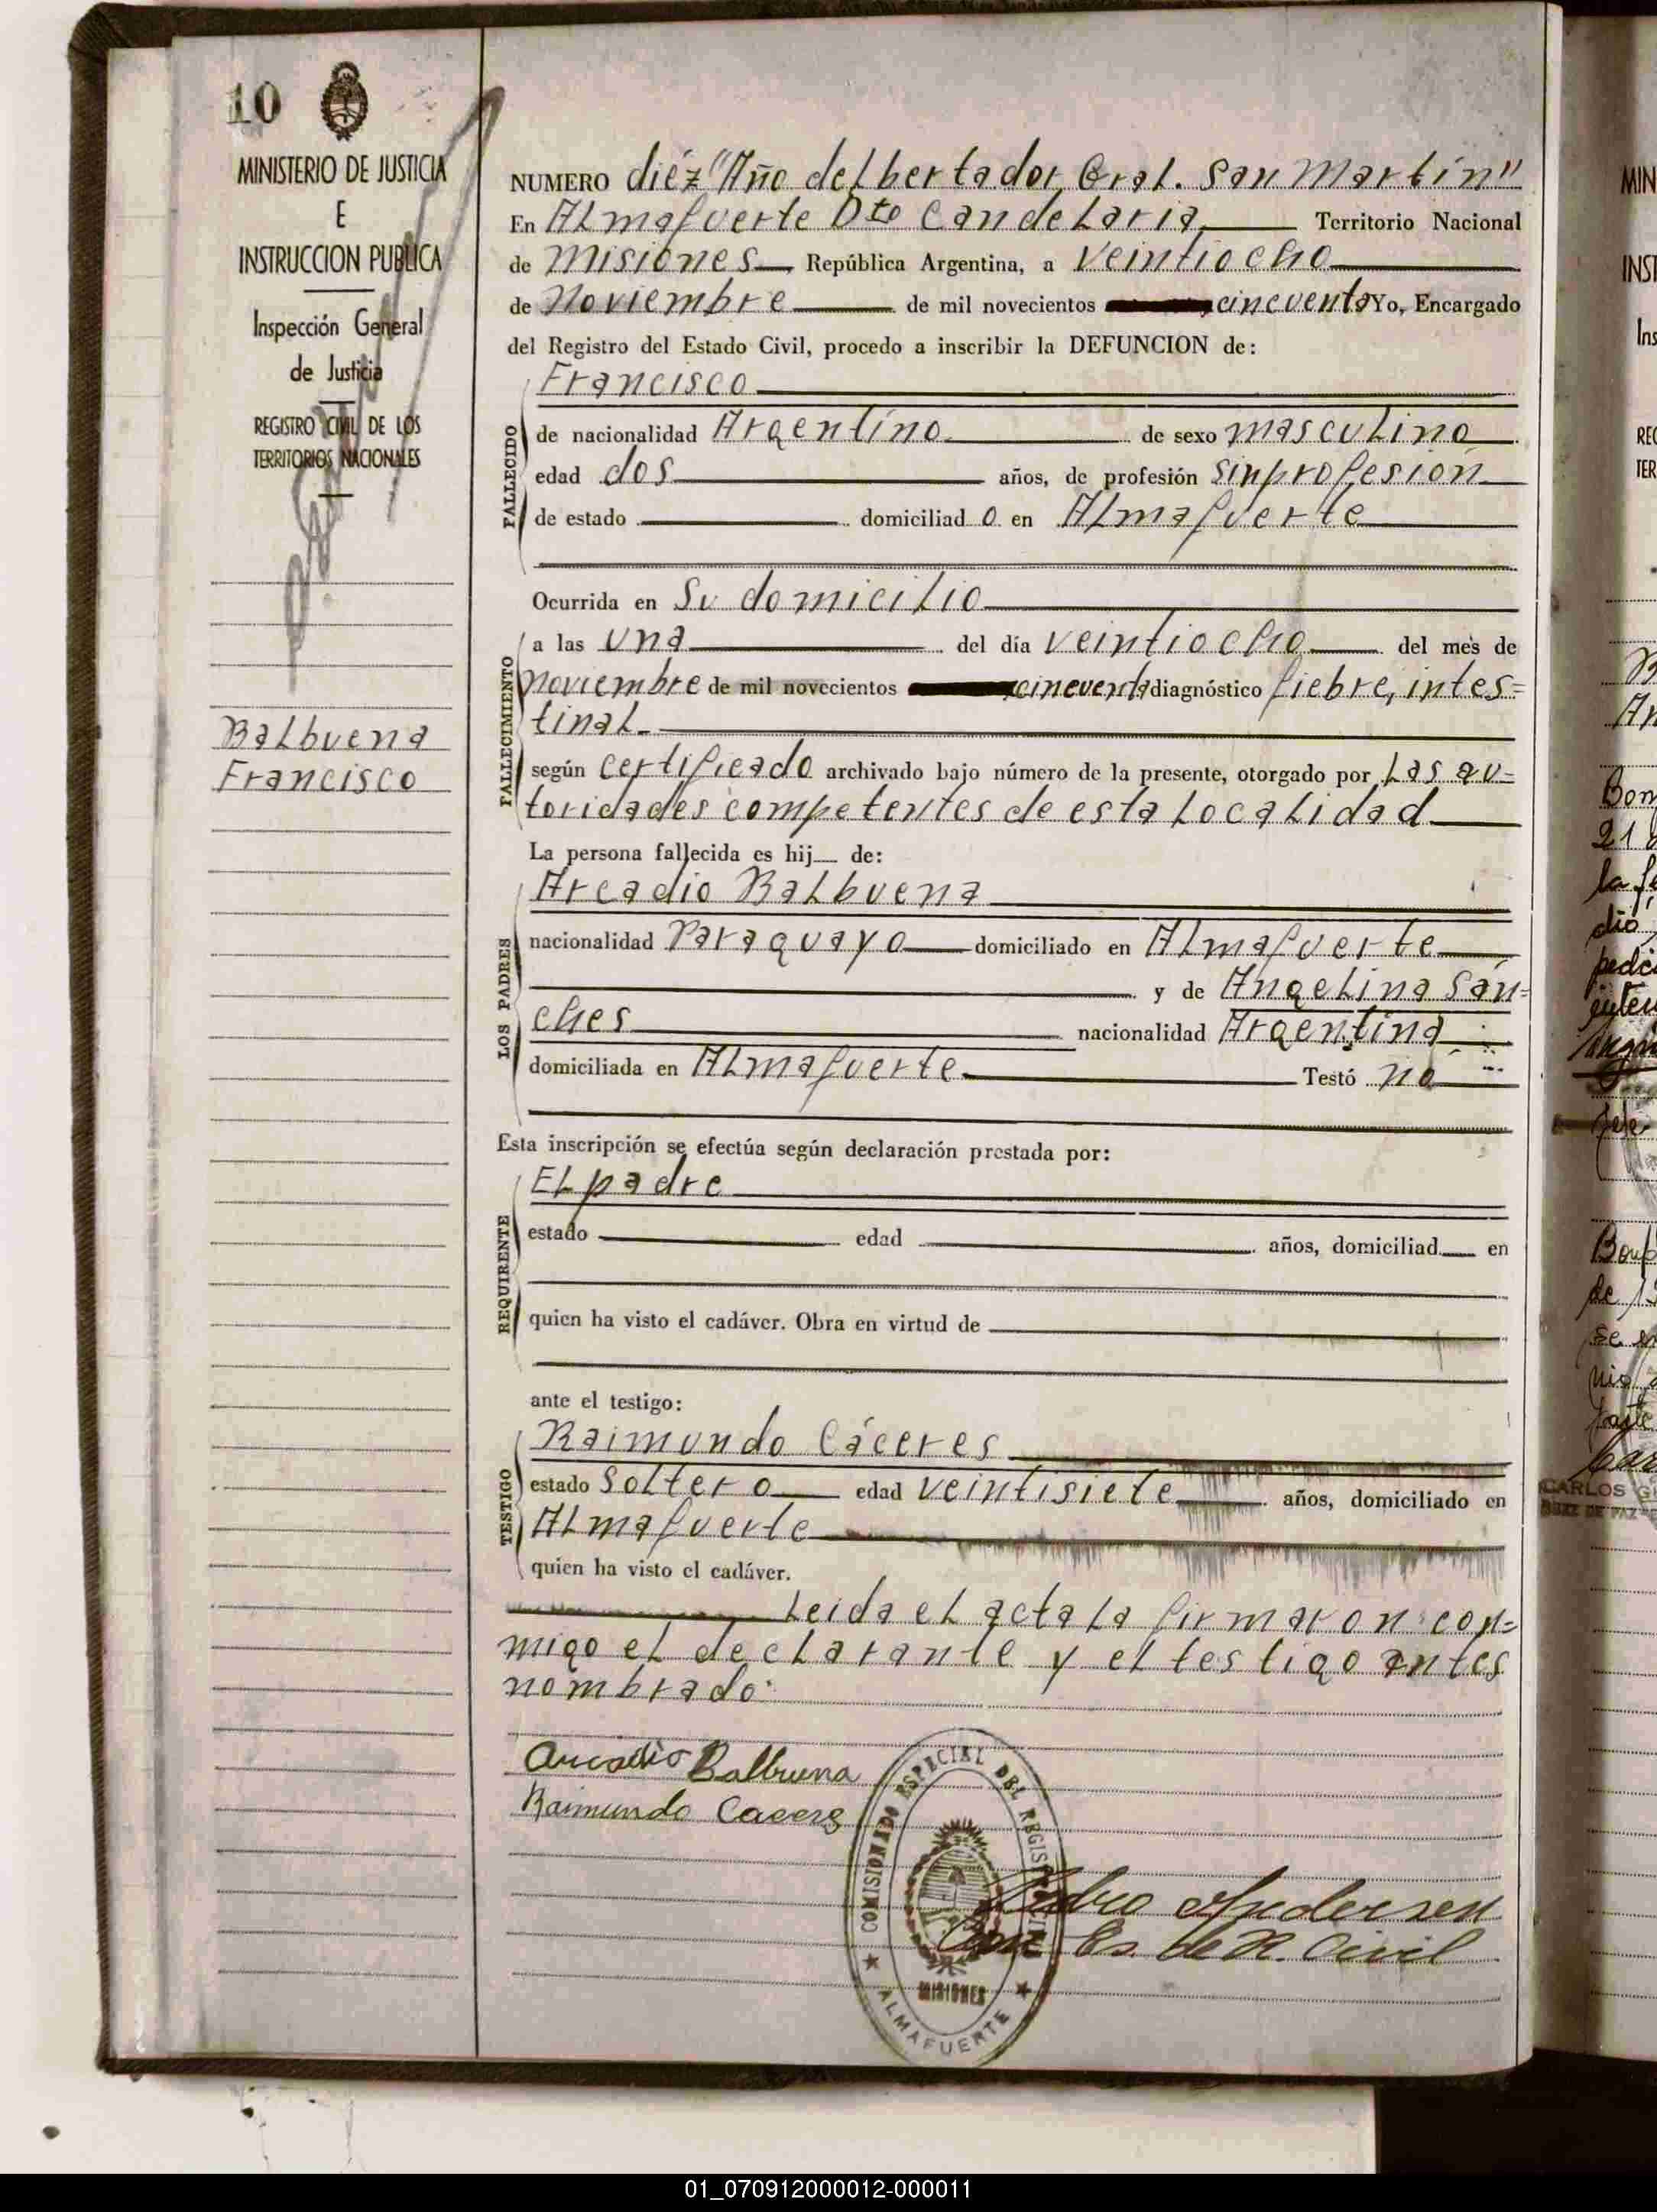 10
MINISTERIO DE JUSTICIA
E
INSTRUCCION PUBLICA
Inspección General
de Justicia
REGISTRO CIVIL DE LOS
TERRITORIOS NACIONALES
Balbuena
Francisco
NUMERO diéz "Año delbertador Gral. San Martín"
En Almafuerte Dto Candelaria Territorio Nacional
de Misiones República Argentina, a veintiocho
de Noviembre de mil novecientos cincuenta Yo, Encargado
del Registro del Estado Civil, procedo a inscribir la DEFUNCION de:
Francisco
FALLECIDO
de nacionalidad Argentíno de sexo masculino
edad dos años, de profesión sinprofesión
de estado domiciliad o en Almafuerte
Ocurrida en Su domicilio
FALLECIMIENTO
a las una del día veintiocho del mes de
noviembre de mil novecientos cincuenta diagnóstico fiebre, intes=
tinal.
según certificado archivado bajo número de la presente, otorgado por las au=
toridades competentes de esta localidad
La persona fallecida es hij de:
LOS PADRES
Arcadio Balbuena
nacionalidad Paraguayo domiciliado en Almafuerte
y de Angelina Sán=
ches nacionalidad Argentina
domiciliada en Almafuerte Testó no
Esta inscripción se efectúa según declaración prestada por:
REQUIRENTE
El padre
estado edad años, domiciliad en
quien ha visto el cadáver. Obra en virtud de
ante el testigo:
TESTIGO
Raimundo Cáceres
estado soltero edad veintisiete años, domiciliado en
Almafuerte
quien ha visto el cadáver.
Leida el acta la firmaron con=
migo el declarante y el testigo antes
nombrado.
Arcadio Balbuena
Raimundo Caceres
COMISIONADO ESPECIAL DEL REGISTRO CIVIL
MISIONES
ALMAFUERTE
Pedro Andersen
Es. de R. Civil
CARLOS G
JUEZ DE PAZ
01_070912000012-000011